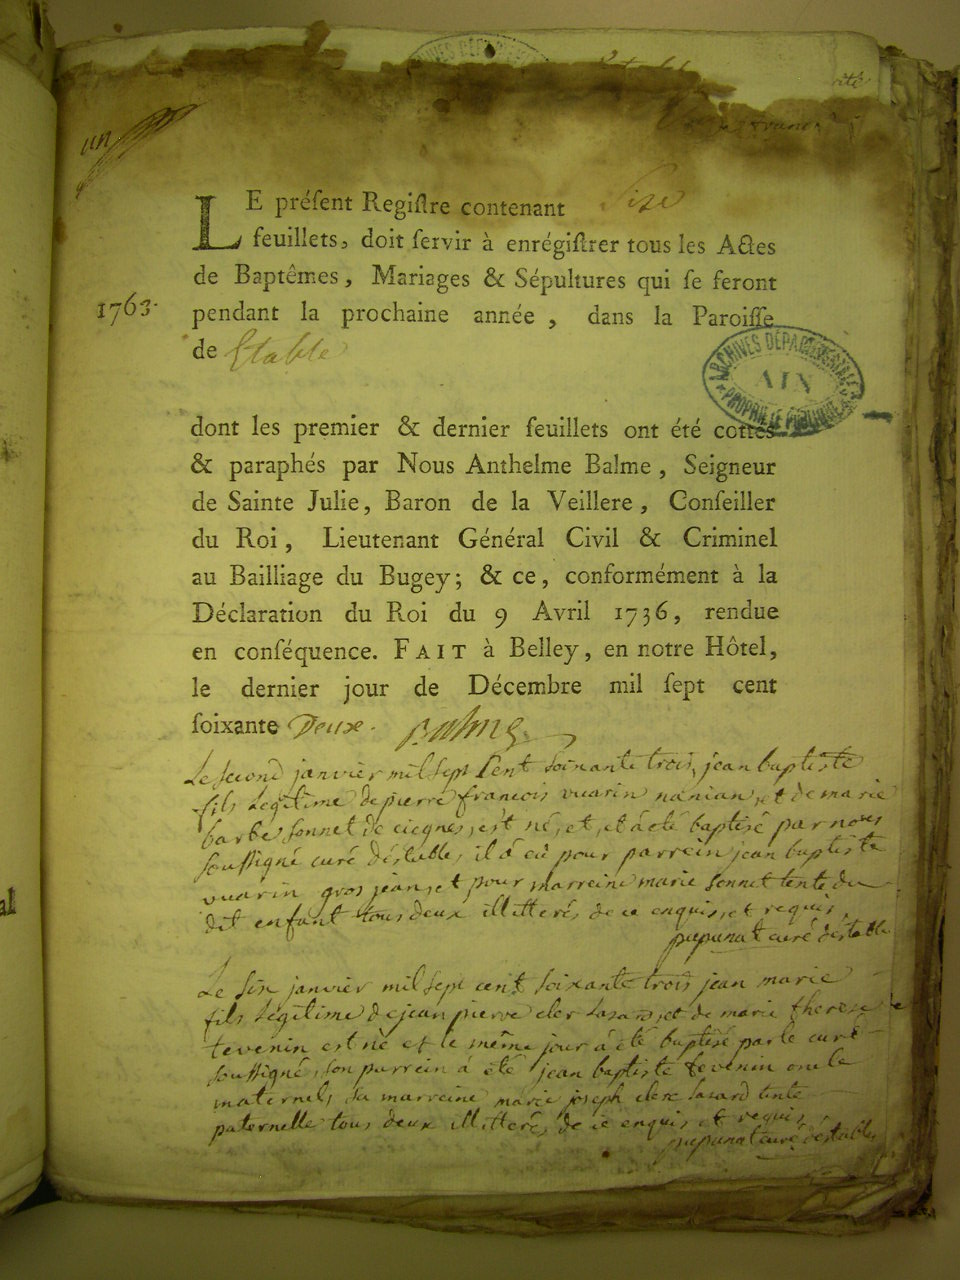 un
LE préſent Regiſtre contenant Size
feuillets, doit ſervir à enrégiſtrer tous les Actes
de Baptêmes, Mariages & Sépultures qui ſe feront
1763. pendant la prochaine année, dans la Paroiſſe
de Etable
ARCHIVES DÉPARTEMENTALES AIN PROPRIÉTÉ PUBLIQUE
dont les premier & dernier feuillets ont été cottés
& paraphés par Nous Anthelme Balme, Seigneur
de Sainte Julie, Baron de la Veillere, Conſeiller
du Roi, Lieutenant Général Civil & Criminel
au Bailliage du Bugey; & ce, conformément à la
Déclaration du Roi du 9 Avril 1736, rendue
en conſéquence. FAIT à Belley, en notre Hôtel,
le dernier jour de Décembre mil ſept cent
ſoixante Deux. Balme
Le second janvier mil sept cent soixante trois, jean baptiste
fils légitime de pierre francois vuarin nanian, et de marie
barbe sonnet de ciegnes, est né, et, et a été baptisé par nous
soussigné curé déstable, il a eû pour parrein jean baptiste
vuarin gros jean, et pour marreine marie sonnet tente du
dit enfant tous deux illitterés de ce enquis, et requis,
pupunat curé destable
Le six janvier mil sept cent soixante trois jean marie
fils légitime de jean pierre clerc lasard, et de marie therese
tevenin est né et le même jour a été baptisé par le curé
soussigné, son parrein a été jean baptiste tevenin oncle
maternel, sa marreine marie joseph clerc lasard tente
paternelle tous deux illitterés de ce enquis et requis,
pupunat curé destable